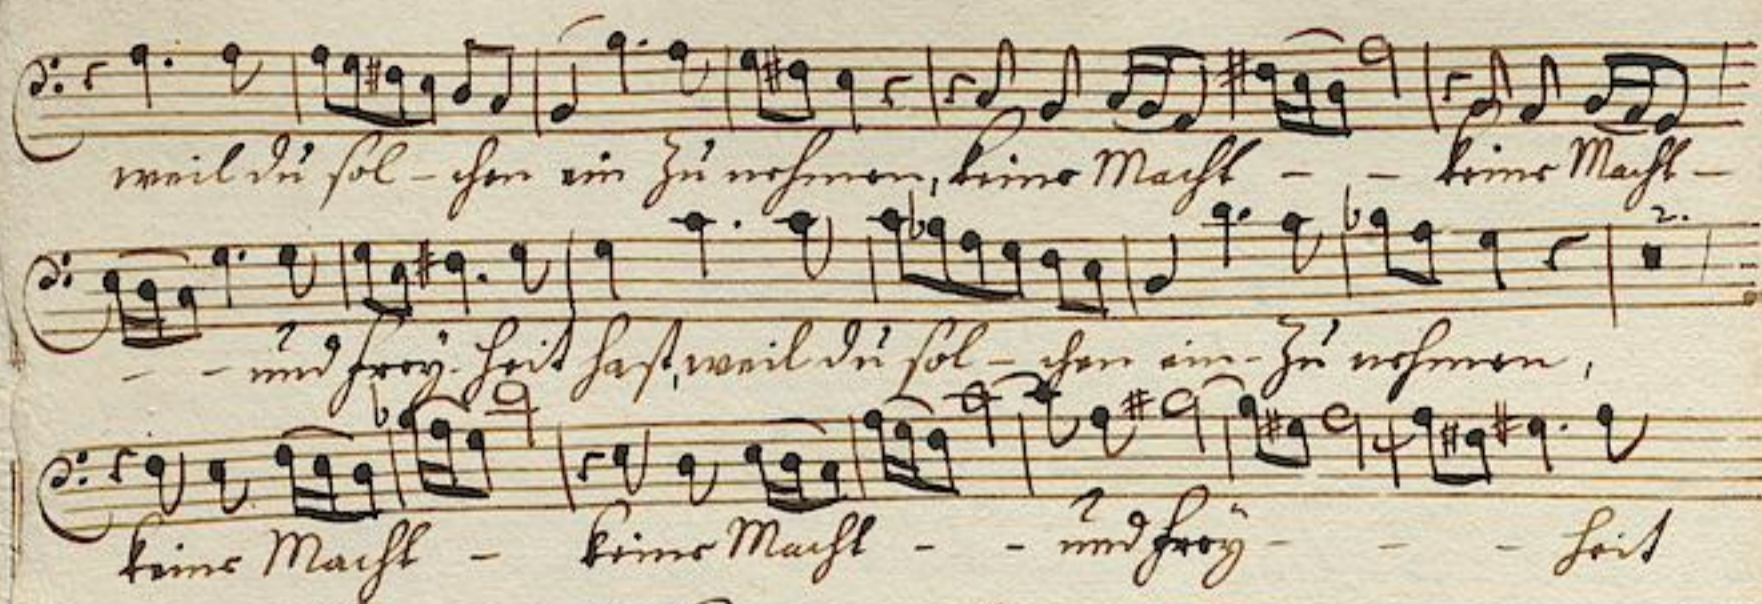 weil du sol - chen ein zu nehmen, keine Macht - - keine Macht -
- - und Frey- heit hast, weil du sol - chen ein - zu nehmen,
keine Macht - keine Macht - - und Frey - - - heit